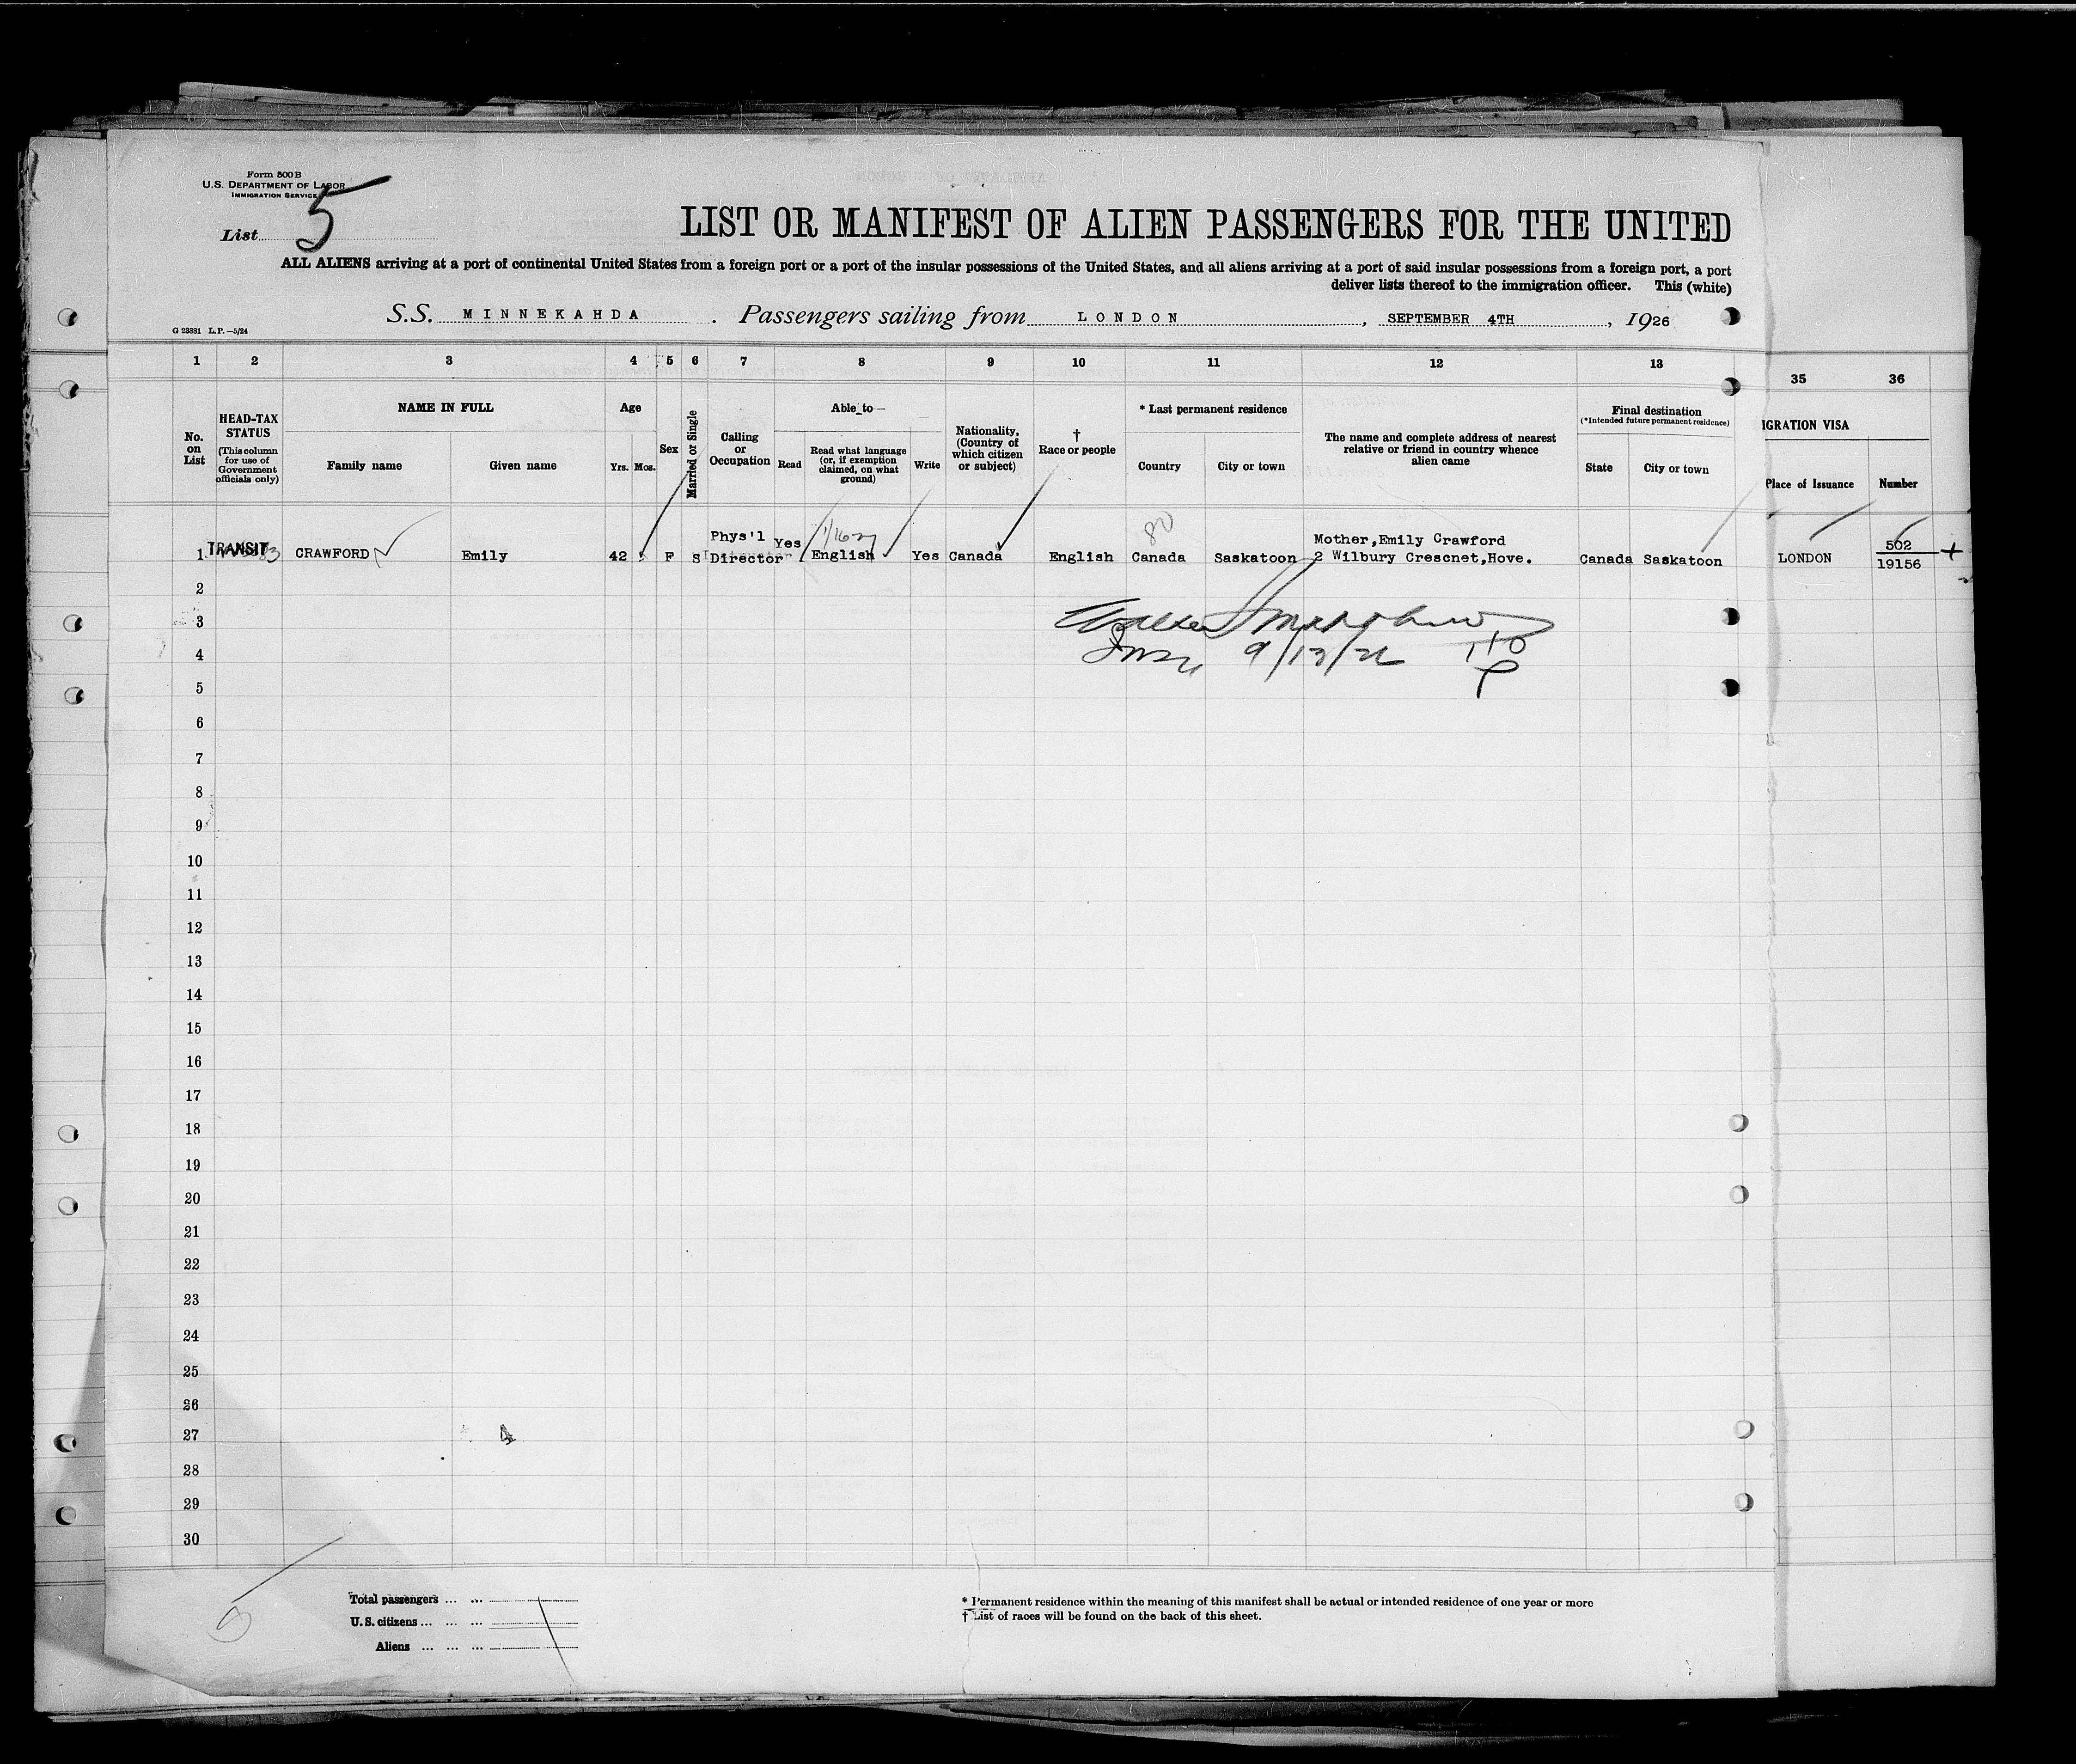 Form 500 B
U.S. DEPARTMENT OF LABOR
IMMIGRATION SERVICE
List 5
LIST OR MANIFEST OF ALIEN PASSENGERS FOR THE UNITED
ALL ALIENS arriving at a port of continental United States from a foreign port or a port of the insular possessions of the United States, and all aliens arriving at a port of said insular possessions from a foreign port, a port
deliver lists thereof to the immigration officer. This (white)
G 23881 L.P.—5/24
S.S. MINNEKAHDA. Passengers sailing from LONDON, SEPTEMBER 4TH, 1926
1 2 3 4 5 6 7 8 9 10 11 12 13
35 36
No. on List
HEAD-TAX STATUS (This column for use of Government officials only)
NAME IN FULL
Family name
Given name
Age
Yrs. Mos.
Sex
Married or Single
Calling or Occupation
Able to—
Read
Read what language (or, if exemption claimed, on what ground)
Write
Nationality, (Country of which citizen or subject)
† Race or people
* Last permanent residence
Country
City or town
The name and complete address of nearest relative or friend in country whence alien came
Final destination
(*Intended future permanent residence)
State
City or town
IGRATION VISA
Place of Issuance
Number
1 TRANSIT CRAWFORD Emily 42 F S Phys'l Director Yes English Yes Canada English Canada Saskatoon Mother,Emily Crawford
2 Wilbury Crescnet,Hove. Canada Saskatoon LONDON 502
19156
80
2
3
4
9/13/26
5
6
7
8
9
10
11
12
13
14
15
16
17
18
19
20
21
22
23
24
25
26
27
28
29
30
Total passengers ... ...
U.S. citizens ... ... ...
Aliens ... ... ...
* Permanent residence within the meaning of this manifest shall be actual or intended residence of one year or more
† List of races will be found on the back of this sheet.